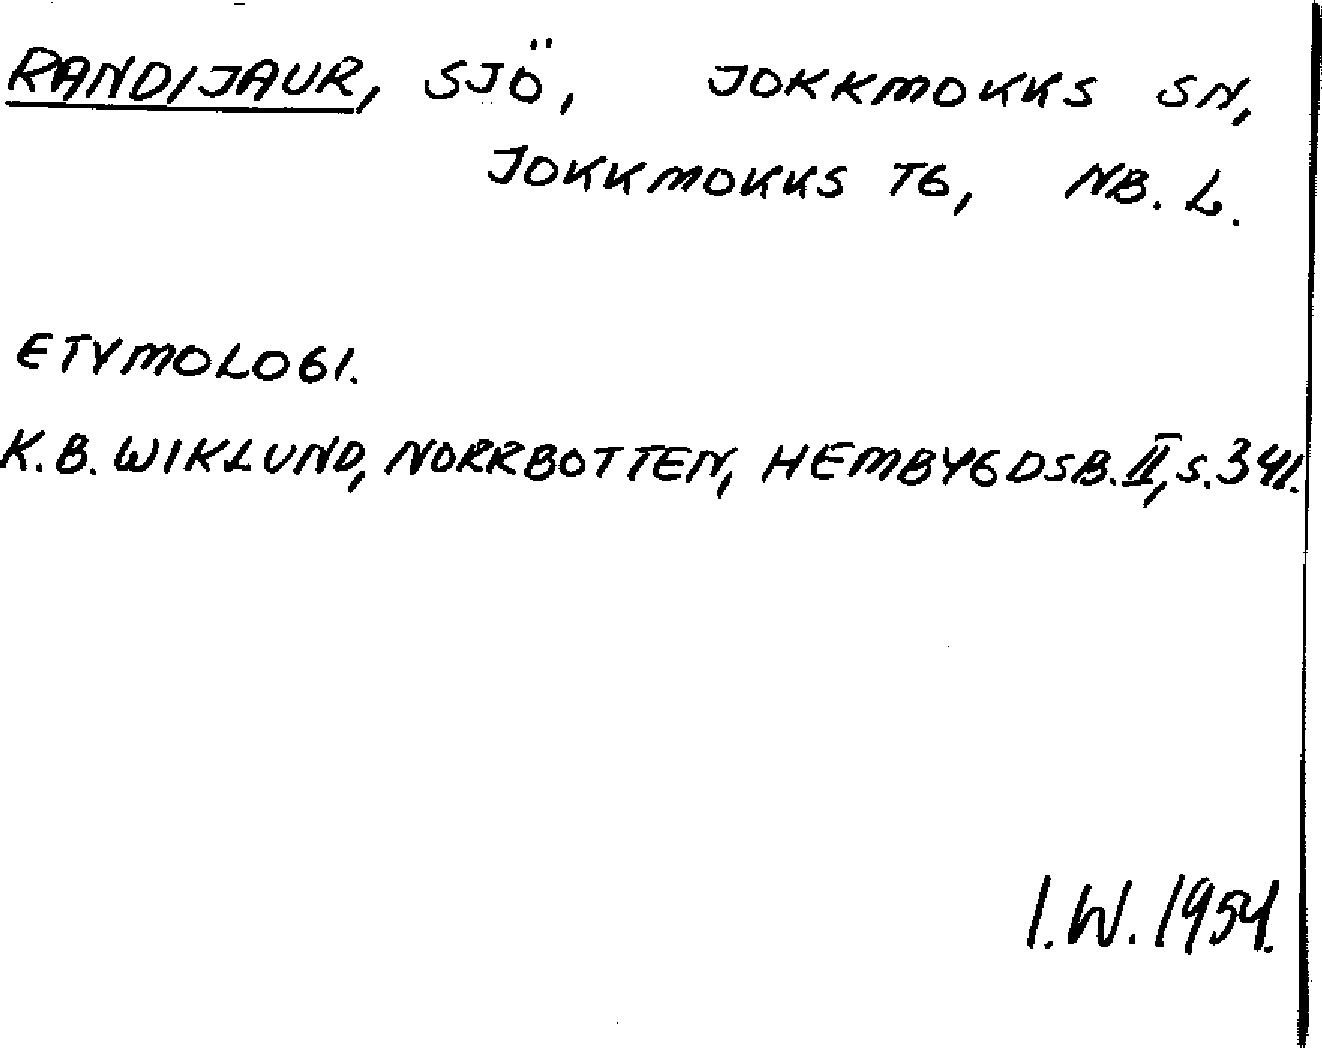 RANDIJAUR, SJÖ, JOKKMOKKS SN,
JOKKMOKKS TG, NB. L.
ETYMOLOGI.
K.B. WIKLUND, NORRBOTTEN, HEMBYGDSB. II, S. 341.
I.W. 1954.